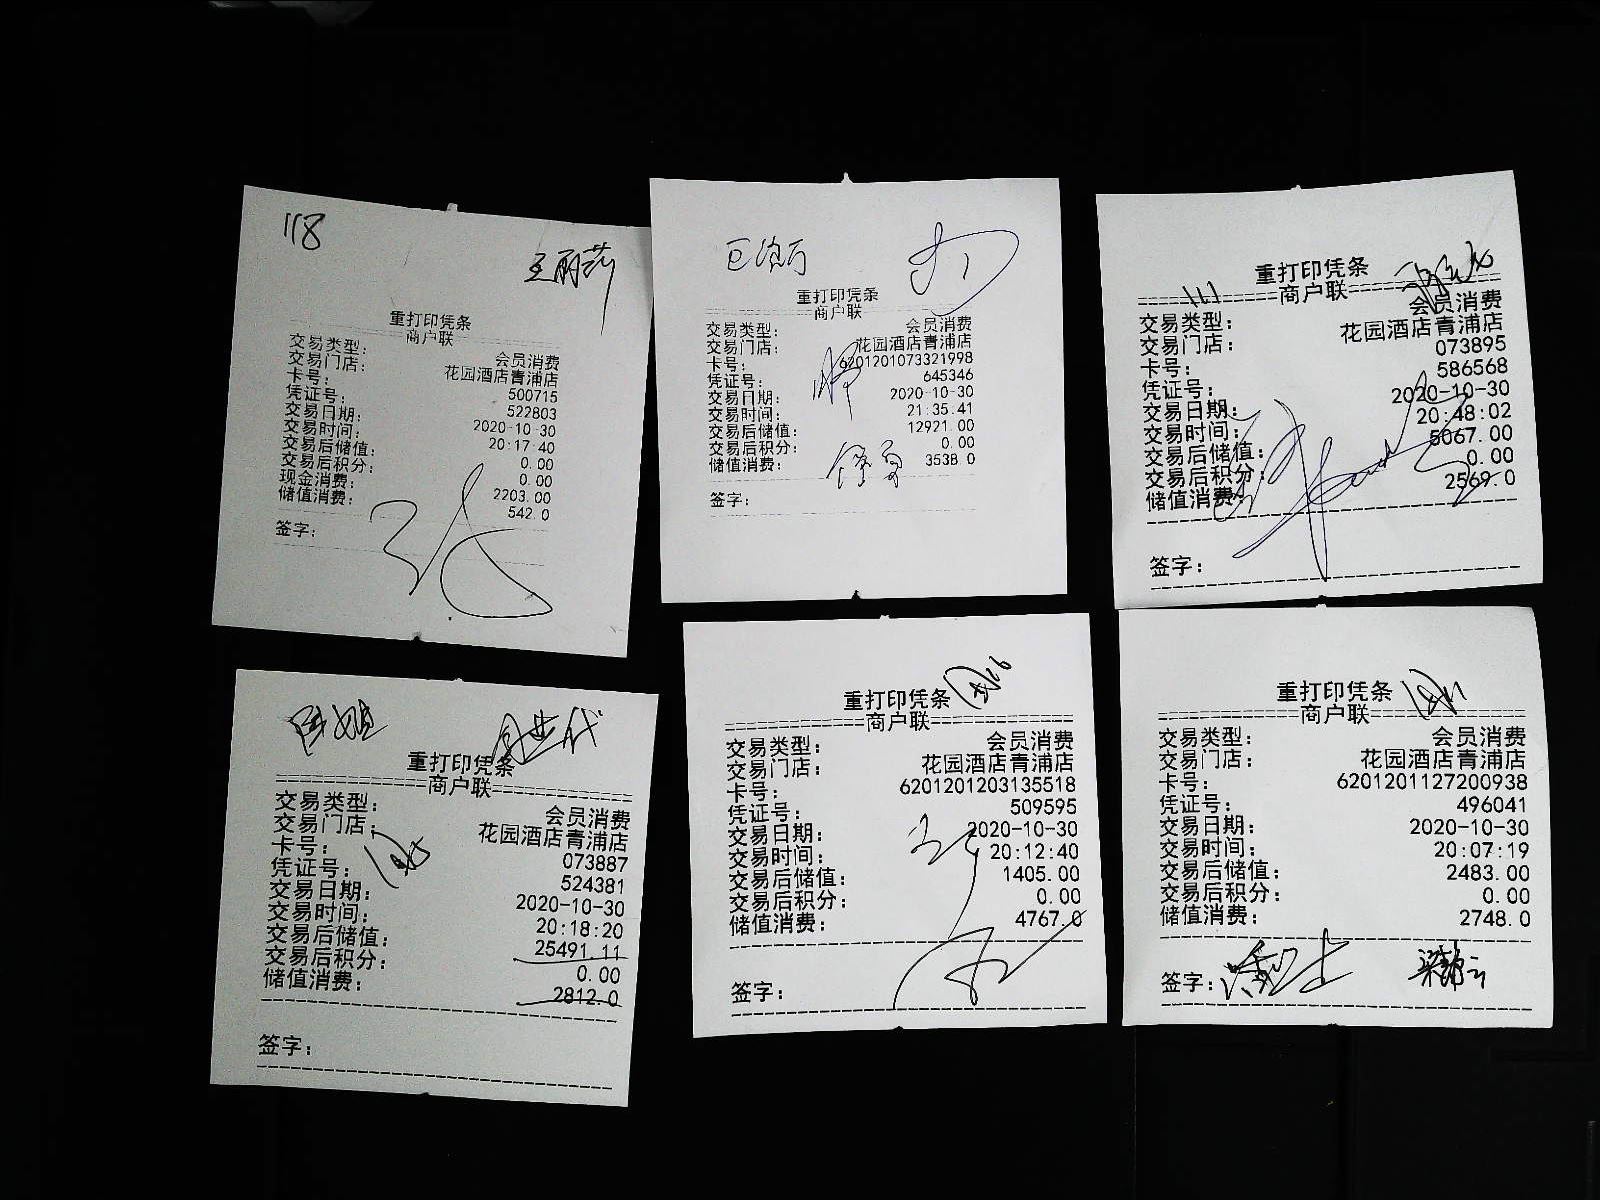 118
王丽莎
重打印凭条
商户联
交易类型: 会员消费
交易门店: 花园酒店青浦店
卡号: 500715
凭证号: 522803
交易日期: 2020-10-30
交易时间: 20:17:40
交易后储值: 0.00
交易后积分: 0.00
现金消费: 2203.00
储值消费: 542.0
签字:
重打印凭条
商户联
交易类型: 会员消费
交易门店: 花园酒店青浦店
卡号: 6201201073321998
凭证号: 645346
交易日期: 2020-10-30
交易时间: 21:35:41
交易后储值: 12921.00
交易后积分: 0.00
储值消费: 3538.0
签字:
重打印凭条
商户联
交易类型: 会员消费
交易门店: 花园酒店青浦店
卡号: 073895
凭证号: 586568
交易日期: 2020-10-30
交易时间: 20:48:02
交易后储值: 5067.00
交易后积分: 0.00
储值消费: 2569.0
签字:
重打印凭条
商户联
交易类型: 会员消费
交易门店: 花园酒店青浦店
卡号: 073887
凭证号: 524381
交易日期: 2020-10-30
交易时间: 20:18:20
交易后储值: 25491.11
交易后积分: 0.00
储值消费: 2812.0
签字:
重打印凭条
商户联
交易类型: 会员消费
交易门店: 花园酒店青浦店
卡号: 6201201203135518
凭证号: 509595
交易日期: 2020-10-30
交易时间: 20:12:40
交易后储值: 1405.00
交易后积分: 0.00
储值消费: 4767.0
签字:
重打印凭条
商户联
交易类型: 会员消费
交易门店: 花园酒店青浦店
卡号: 6201201127200938
凭证号: 496041
交易日期: 2020-10-30
交易时间: 20:07:19
交易后储值: 2483.00
交易后积分: 0.00
储值消费: 2748.0
签字: